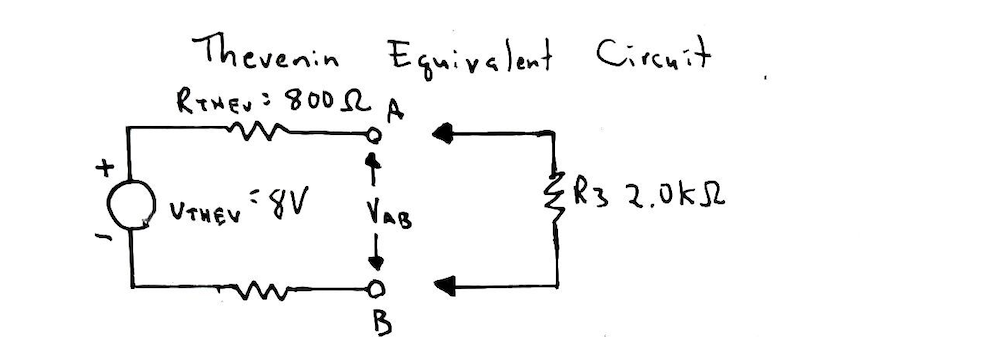 Thevenin Equivalent Circuit
RTHEV = 800 Ω
A
+
VTHEV = 8V
VAB
R3 2.0kΩ
-
B